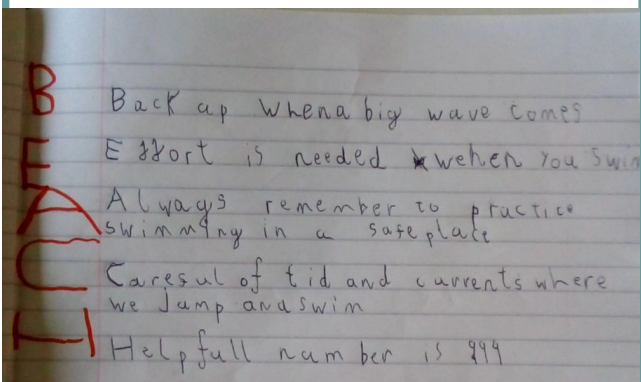 B Back up whena big wave comes
E Effort is needed wehen you swim
A Always remember to practice
swimming in a safe place
C Caresul of tid and currents where
we Jump and swim
H Helpfull number is 999